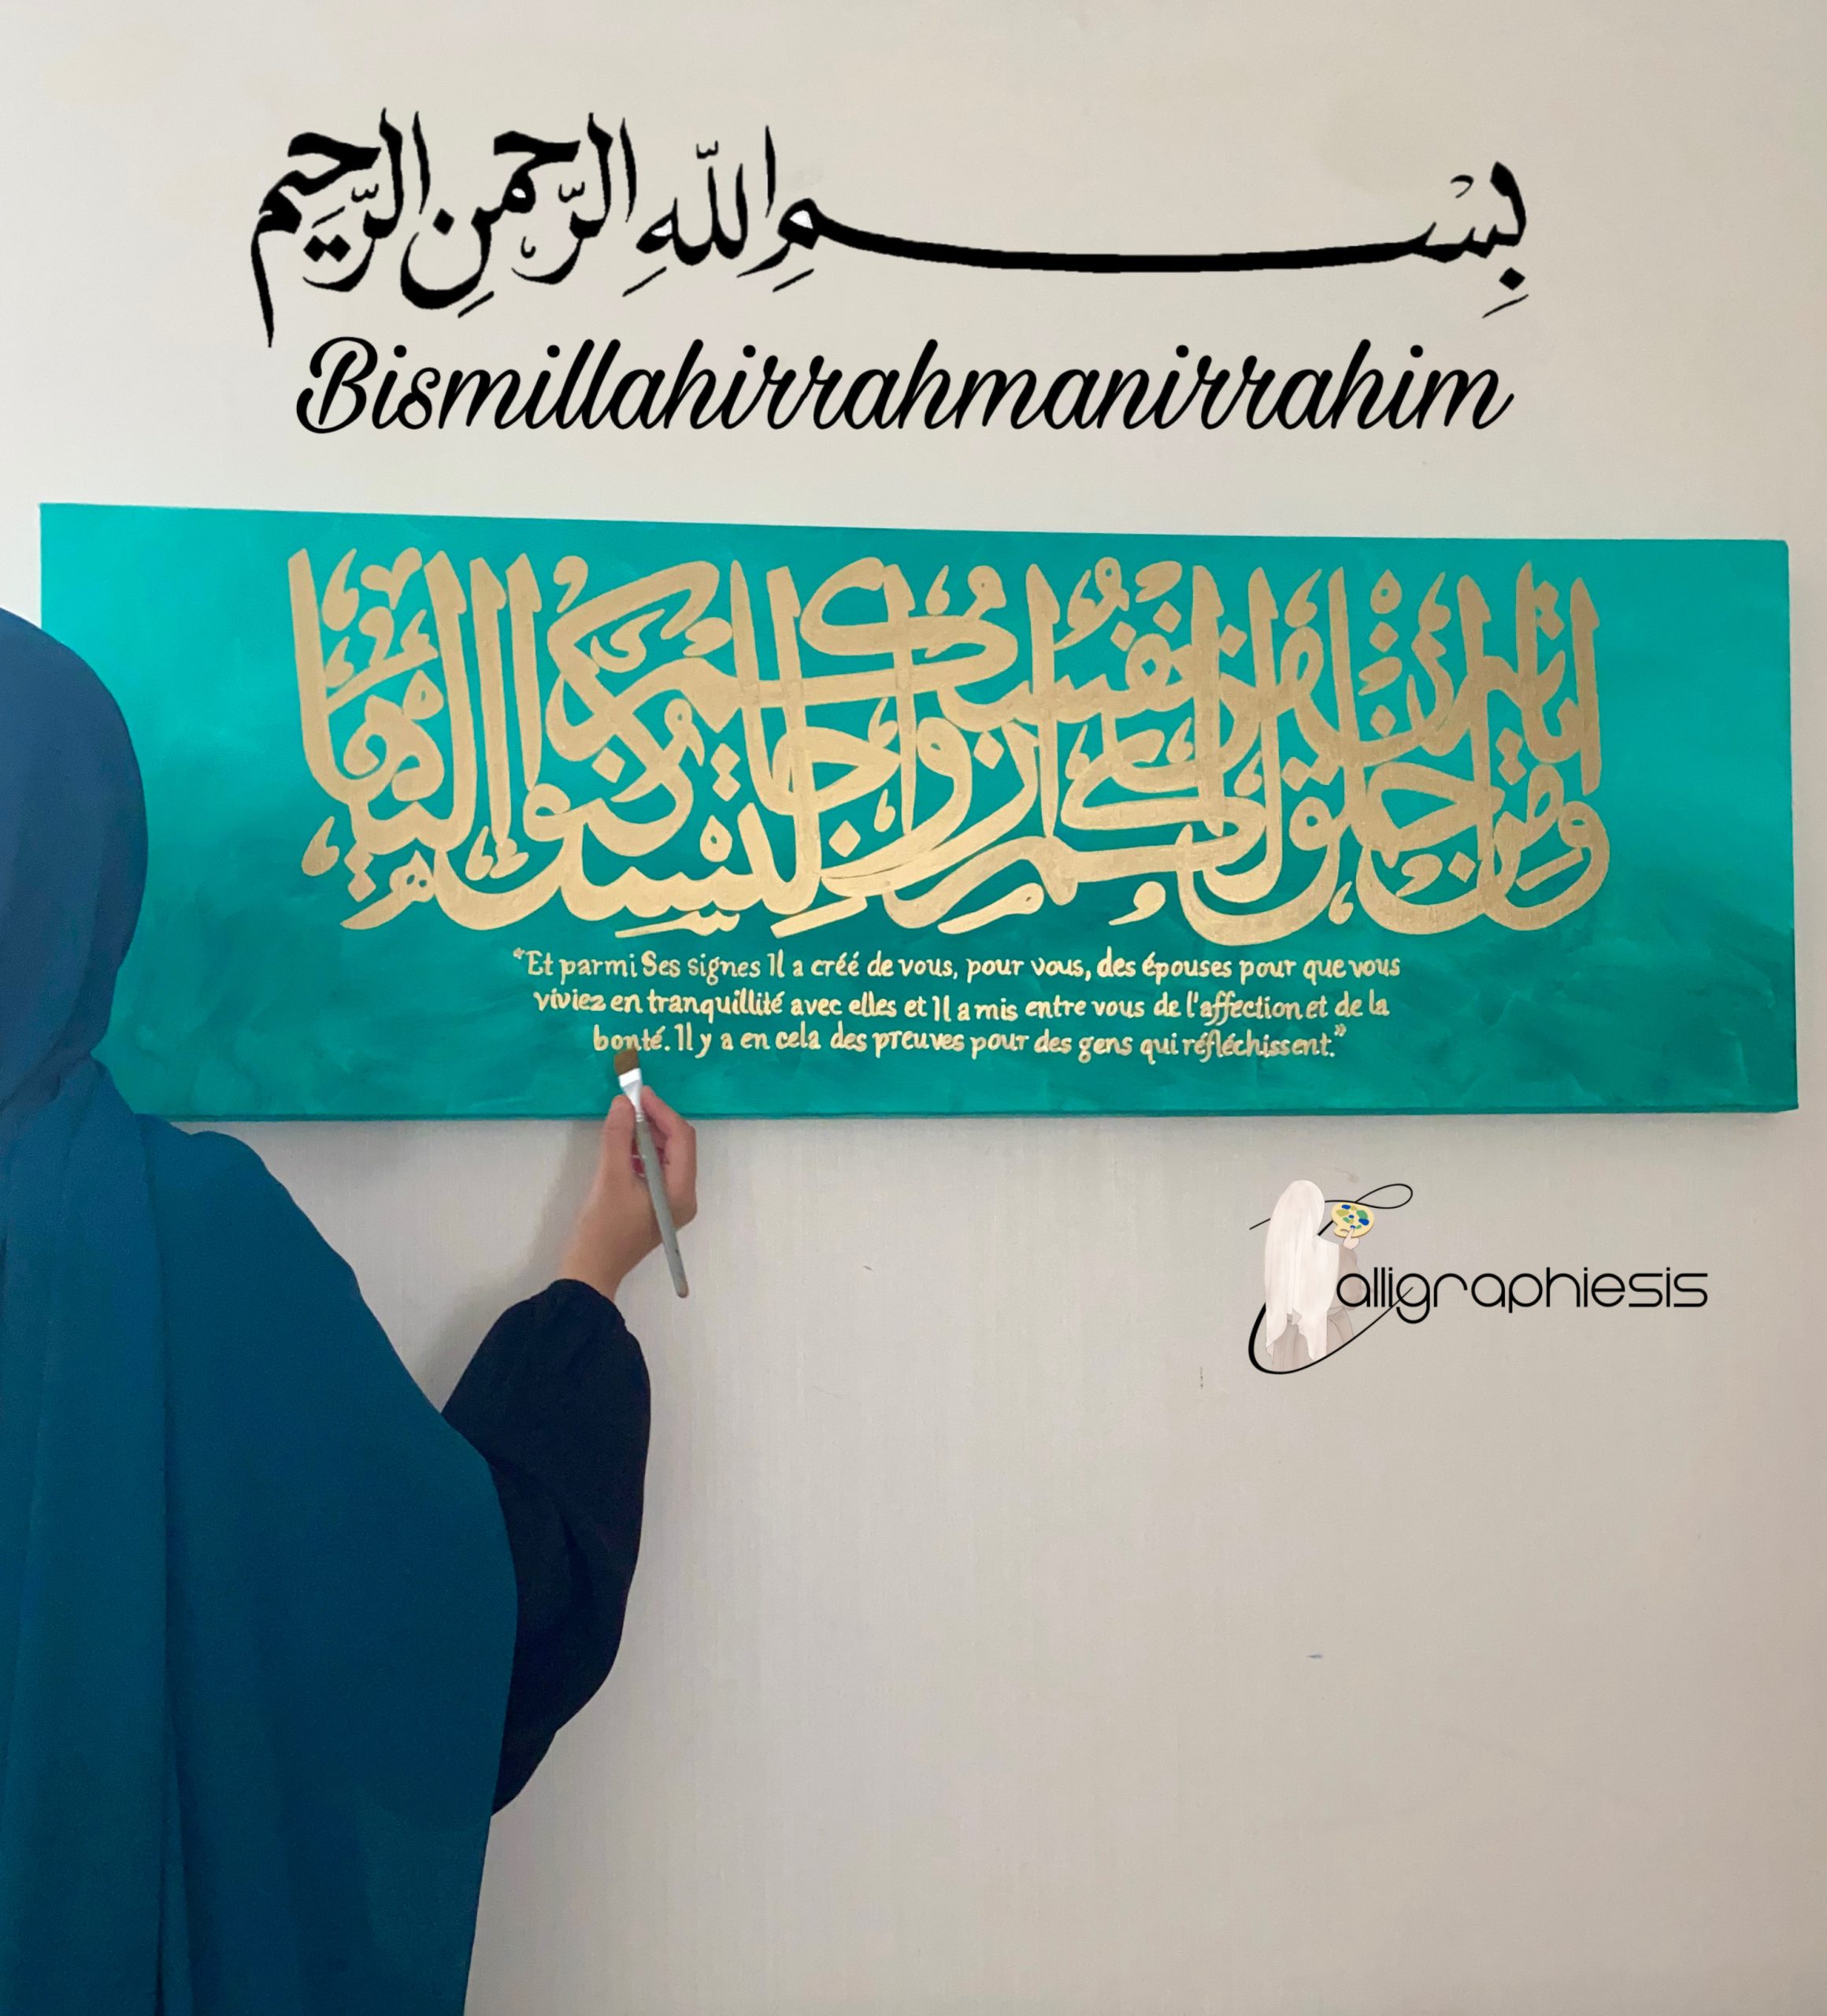 بِسْمِ اللّٰهِ الرَّحْمٰنِ الرَّحِيْمِ
Bismillahirrahmanirrahim
وَمِنْ آيَاتِهِ أَنْ خَلَقَ لَكُمْ مِنْ أَنْفُسِكُمْ أَزْوَاجًا لِتَسْكُنُوا إِلَيْهَا
"Et parmi Ses signes Il a créé de vous, pour vous, des épouses pour que vous
viviez en tranquillité avec elles et Il a mis entre vous de l'affection et de la
bonté. Il y a en cela des preuves pour des gens qui réfléchissent."
Calligraphiesis